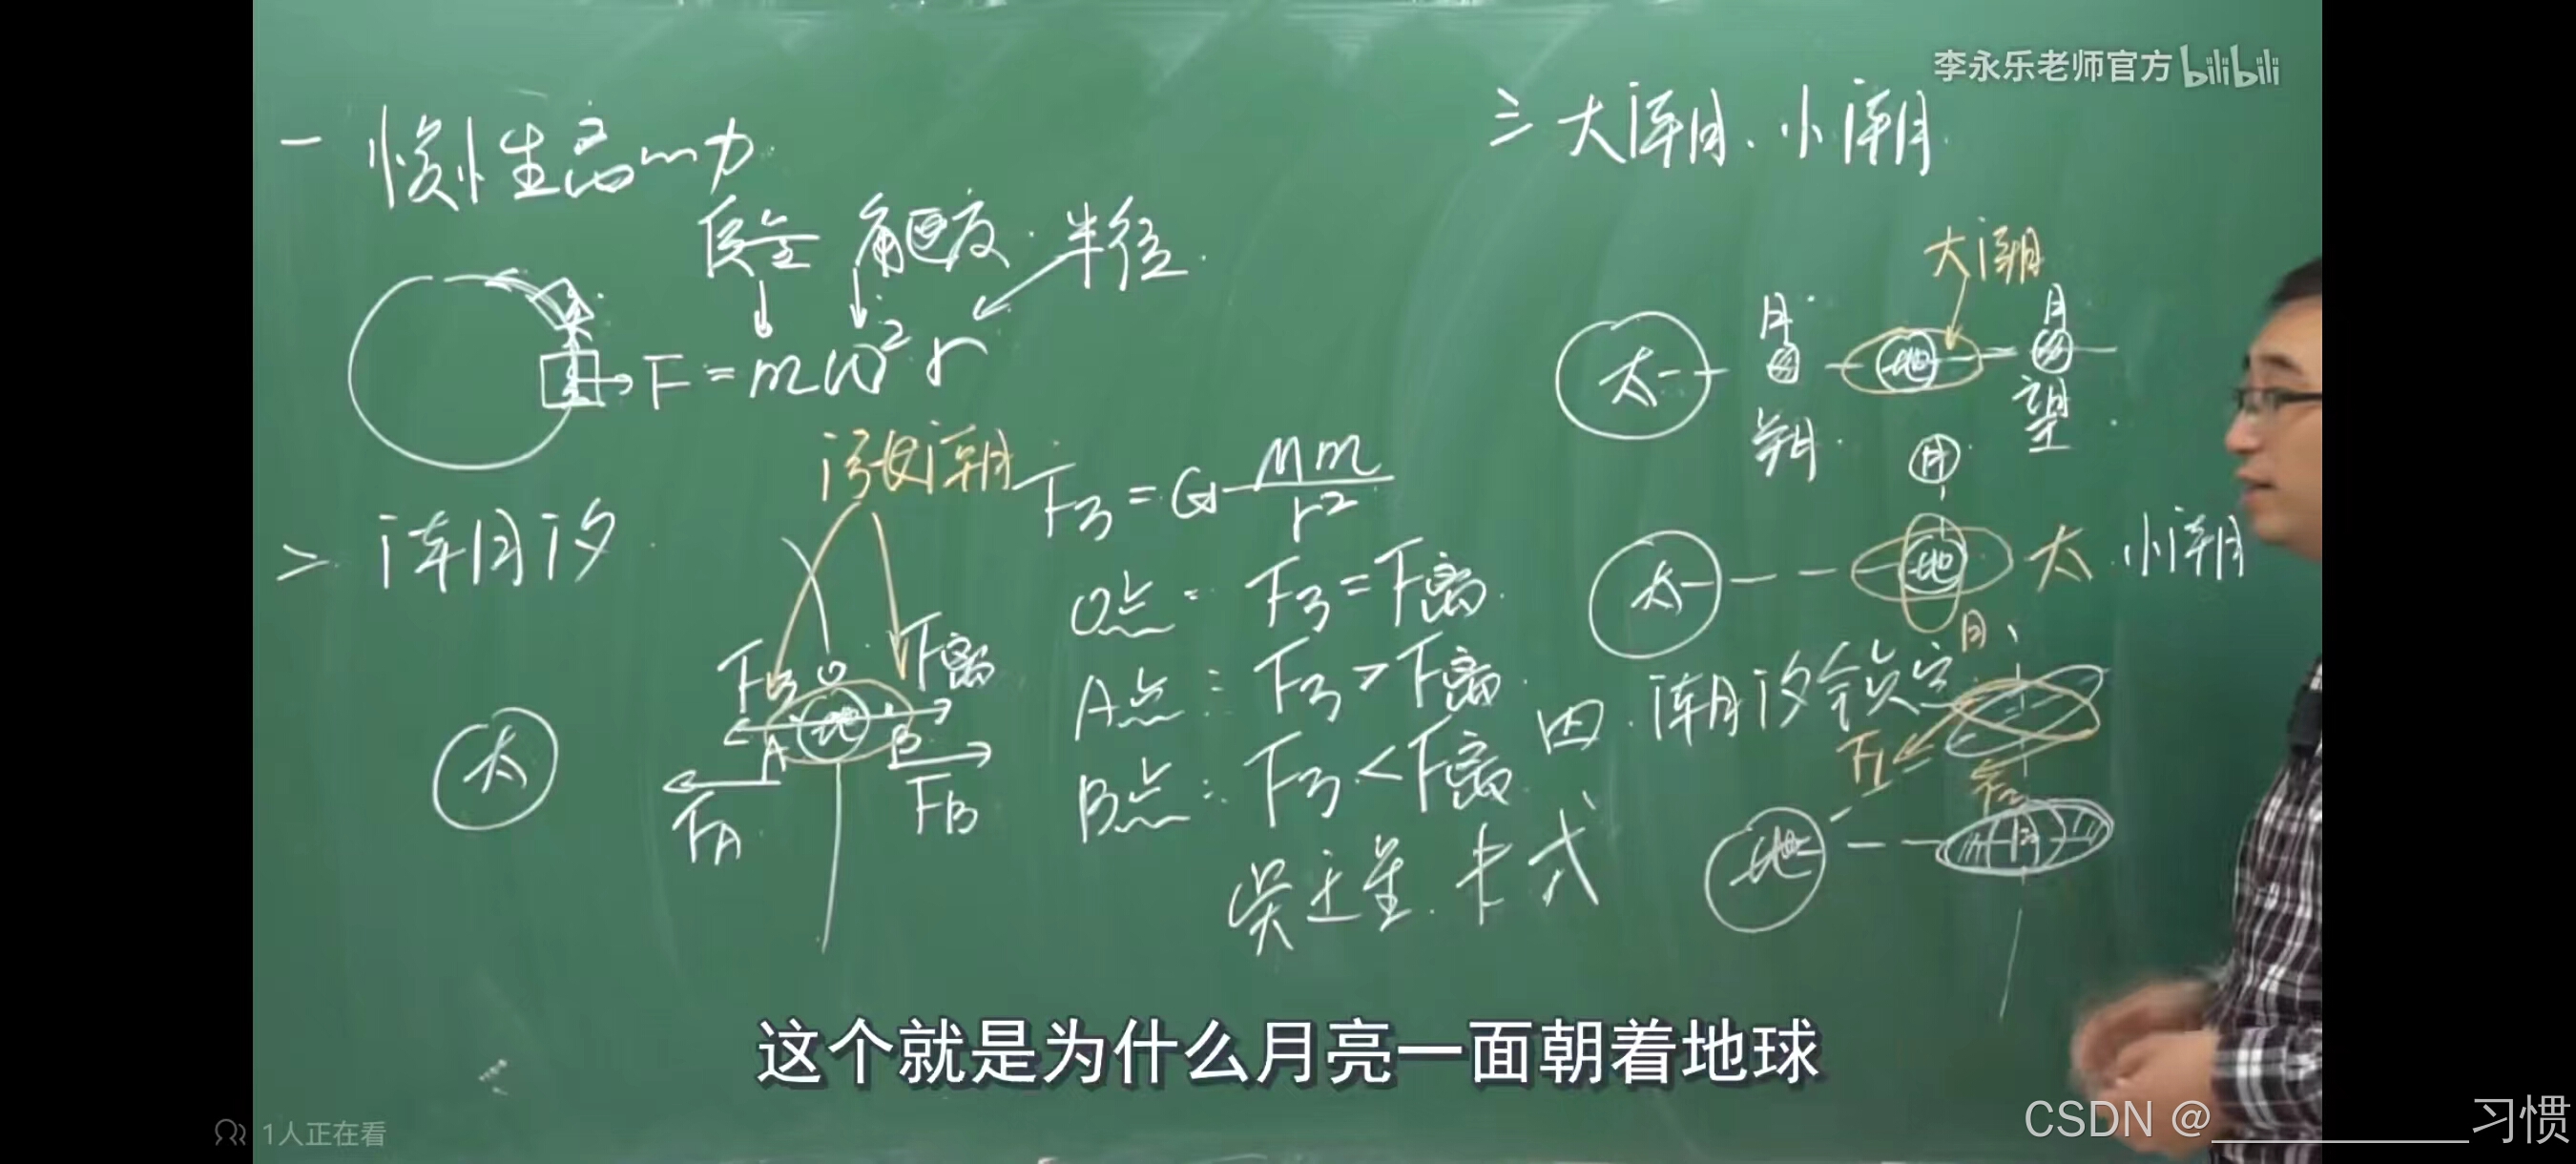 李永乐老师官方 bilibili
一 惯性离心力
质量 角速度 半径
F = mω²r
二 潮汐
涨潮
F万 = G Mm/r²
O点: F万 = F离
A点: F万 > F离
B点: F万 < F离
F万 O F离
太 地
A B
FA FB
三 大潮、小潮
大潮
太 月 地 月
朔 望
月
太 地 太 小潮
月
四. 潮汐锁定
F1
F2
地 月
这个就是为什么月亮一面朝着地球
1人正在看
CSDN @__________习惯